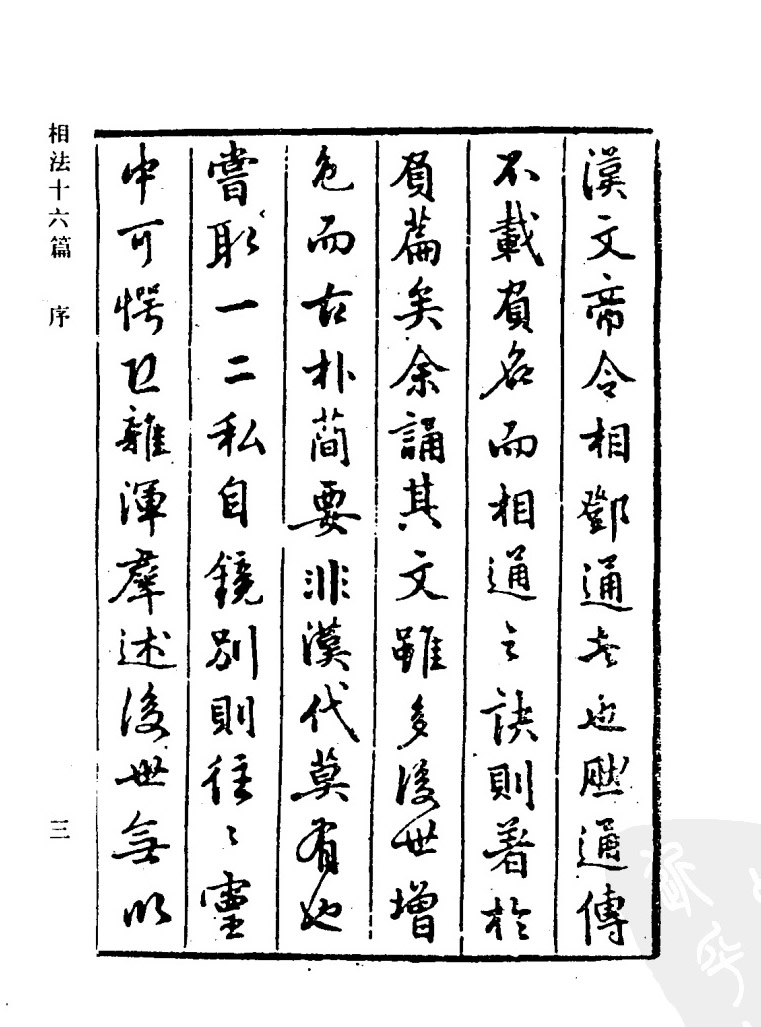 漢文帝令相鄧通者也然通傳
不載負名而相通之訣則著於
負篇矣余誦其文雖多後世增
色而古朴簡要非漢代莫有也
嘗取一二私自鏡別則往々靈
中可愕且雜渾羣述後世無以
相法十六篇 序 三